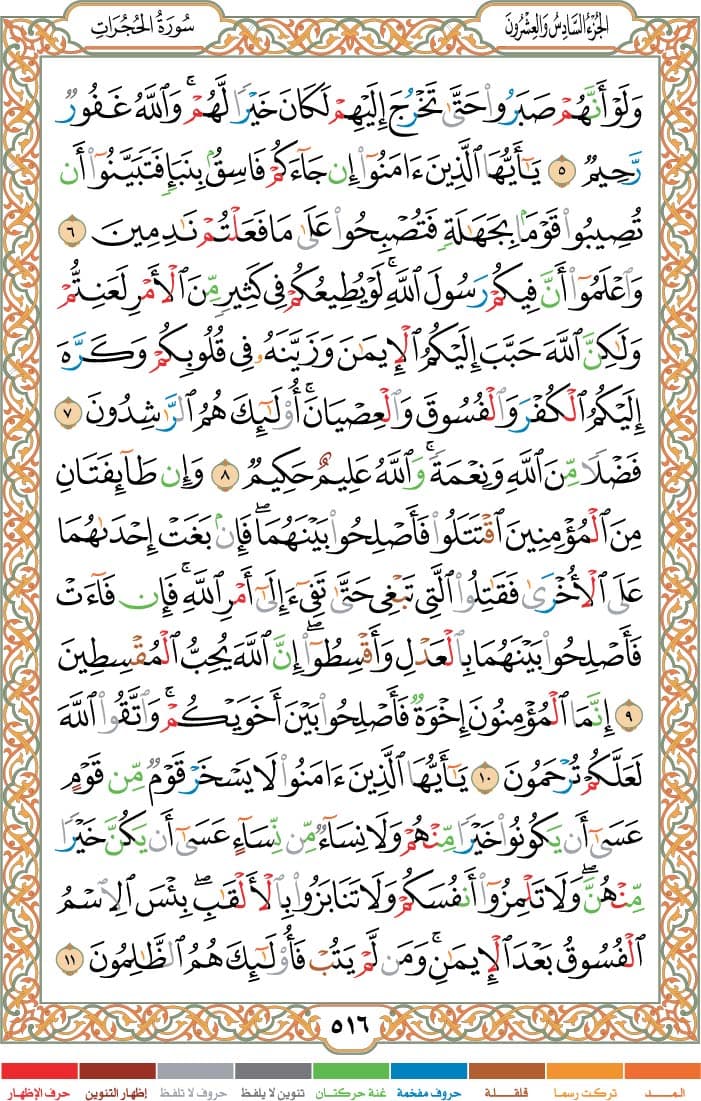 الجُزءُ السَّادِسُ وَالعِشْرُونَ
سُورَةُ الحُجُرَاتِ
وَلَوْ أَنَّهُمْ صَبَرُوا۟ حَتَّىٰ تَخْرُجَ إِلَيْهِمْ لَكَانَ خَيْرًا لَّهُمْ ۚ وَٱللَّهُ غَفُورٌ
رَّحِيمٌ ٥ يَـٰٓأَيُّهَا ٱلَّذِينَ ءَامَنُوٓا۟ إِن جَآءَكُمْ فَاسِقٌۢ بِنَبَإٍ فَتَبَيَّنُوٓا۟ أَن
تُصِيبُوا۟ قَوْمًۢا بِجَهَـٰلَةٍ فَتُصْبِحُوا۟ عَلَىٰ مَا فَعَلْتُمْ نَـٰدِمِينَ ٦
وَٱعْلَمُوٓا۟ أَنَّ فِيكُمْ رَسُولَ ٱللَّهِ ۚ لَوْ يُطِيعُكُمْ فِى كَثِيرٍ مِّنَ ٱلْأَمْرِ لَعَنِتُّمْ
وَلَـٰكِنَّ ٱللَّهَ حَبَّبَ إِلَيْكُمُ ٱلْإِيمَـٰنَ وَزَيَّنَهُۥ فِى قُلُوبِكُمْ وَكَرَّهَ
إِلَيْكُمُ ٱلْكُفْرَ وَٱلْفُسُوقَ وَٱلْعِصْيَانَ ۚ أُو۟لَـٰٓئِكَ هُمُ ٱلرَّٰشِدُونَ ٧
فَضْلًا مِّنَ ٱللَّهِ وَنِعْمَةً ۚ وَٱللَّهُ عَلِيمٌ حَكِيمٌ ٨ وَإِن طَآئِفَتَانِ
مِنَ ٱلْمُؤْمِنِينَ ٱقْتَتَلُوا۟ فَأَصْلِحُوا۟ بَيْنَهُمَا ۖ فَإِنۢ بَغَتْ إِحْدَىٰهُمَا
عَلَى ٱلْأُخْرَىٰ فَقَـٰتِلُوا۟ ٱلَّتِى تَبْغِى حَتَّىٰ تَفِىٓءَ إِلَىٰٓ أَمْرِ ٱللَّهِ ۚ فَإِن فَآءَتْ
فَأَصْلِحُوا۟ بَيْنَهُمَا بِٱلْعَدْلِ وَأَقْسِطُوٓا۟ ۖ إِنَّ ٱللَّهَ يُحِبُّ ٱلْمُقْسِطِينَ
٩ إِنَّمَا ٱلْمُؤْمِنُونَ إِخْوَةٌ فَأَصْلِحُوا۟ بَيْنَ أَخَوَيْكُمْ ۚ وَٱتَّقُوا۟ ٱللَّهَ
لَعَلَّكُمْ تُرْحَمُونَ ١٠ يَـٰٓأَيُّهَا ٱلَّذِينَ ءَامَنُوا۟ لَا يَسْخَرْ قَوْمٌ مِّن قَوْمٍ
عَسَىٰٓ أَن يَكُونُوا۟ خَيْرًا مِّنْهُمْ وَلَا نِسَآءٌ مِّن نِّسَآءٍ عَسَىٰٓ أَن يَكُنَّ خَيْرًا
مِّنْهُنَّ ۖ وَلَا تَلْمِزُوٓا۟ أَنفُسَكُمْ وَلَا تَنَابَزُوا۟ بِٱلْأَلْقَـٰبِ ۖ بِئْسَ ٱلِٱسْمُ
ٱلْفُسُوقُ بَعْدَ ٱلْإِيمَـٰنِ ۚ وَمَن لَّمْ يَتُبْ فَأُو۟لَـٰٓئِكَ هُمُ ٱلظَّـٰلِمُونَ ١١
٥١٦
المــد تركت رسما قلقلة حروف مفخمة غنة حركتان تنوين لا يلفظ حروف لا تلفظ إظهار التنوين حرف الإظهار